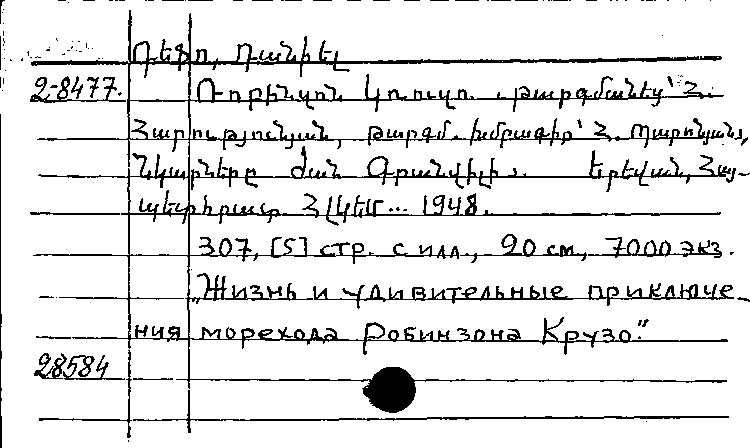 Դեֆո, Դանիել
2-8477. Ռոբինզոն Կռուզո. թարգմանեց՝ Հ.
Հարությունյան, թարգմ. խմբագիր՝ Հ. Պարոնյան,
Նկարները ժան Գրանվիլի. Երեվան, Հայ-
պետհրատ. ՀԼԿԵՄ... 1948.
307, [5] стр. с илл., 20 см, 7000 экз.
„Жизнь и удивительные приключе-
ния морехода Робинзона Крузо."
28584